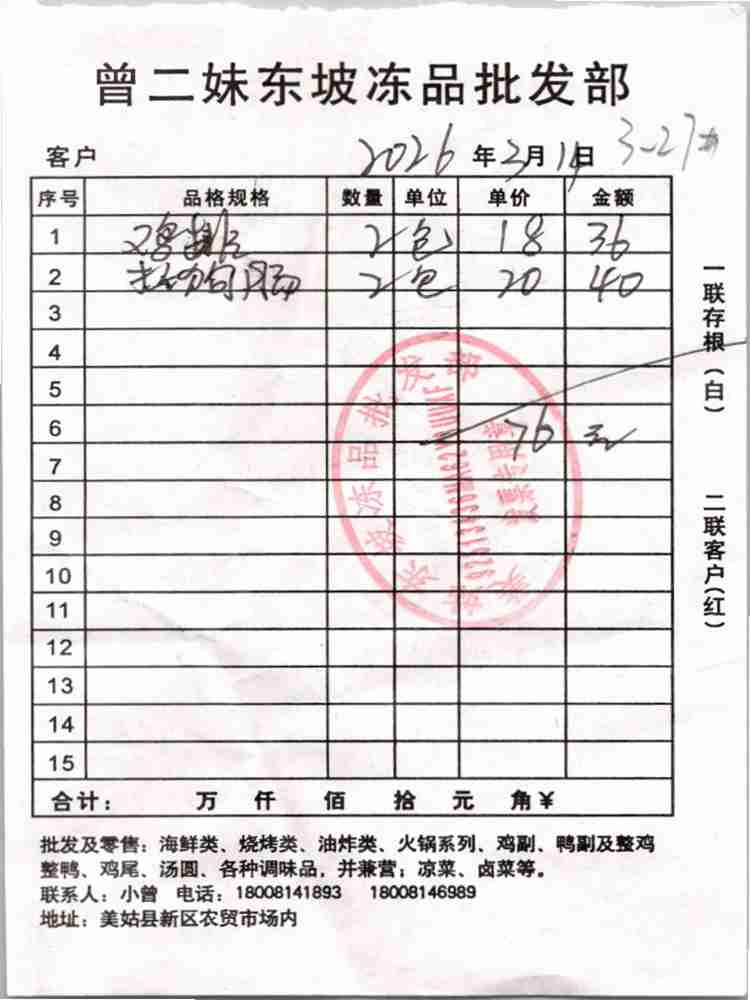 曾二妹东坡冻品批发部
客户 2026年2月14日 3-27#
序号 品格规格 数量 单位 单价 金额
1 鸡排 2 包 18 36
2 肉肠 2 包 20 40
3
4
5
6 76元
7
8
9
10
11
12
13
14
15
合计: 万 仟 佰 拾 元 角¥
一联存根(白) 二联客户(红)
东坡冻品批发部
批发及零售:海鲜类、烧烤类、油炸类、火锅系列、鸡副、鸭副及整鸡
整鸭、鸡尾、汤圆、各种调味品,并兼营;凉菜、卤菜等。
联系人:小曾 电话:18008141893 18008146989
地址:美姑县新区农贸市场内